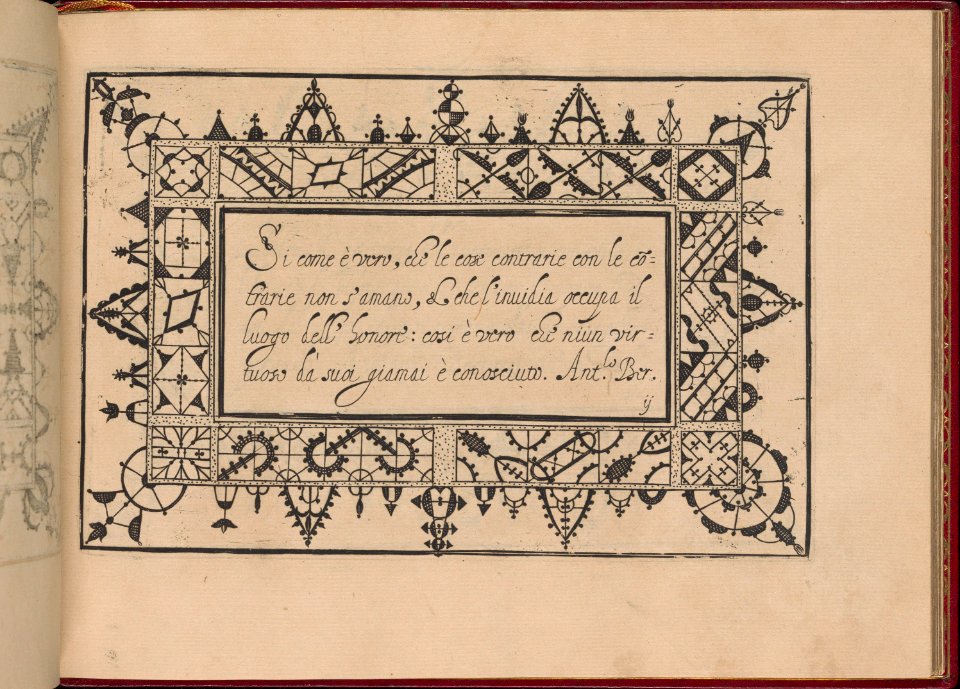 Si come è vero, che le cose contrarie con le cō-
trarie non s'amano, & che l'invidia occupa il
luogo dell' honore: cosi è vero che niun vir-
tuoso dà suoi giamai è conosciuto. Ant.lo Ber.
ij